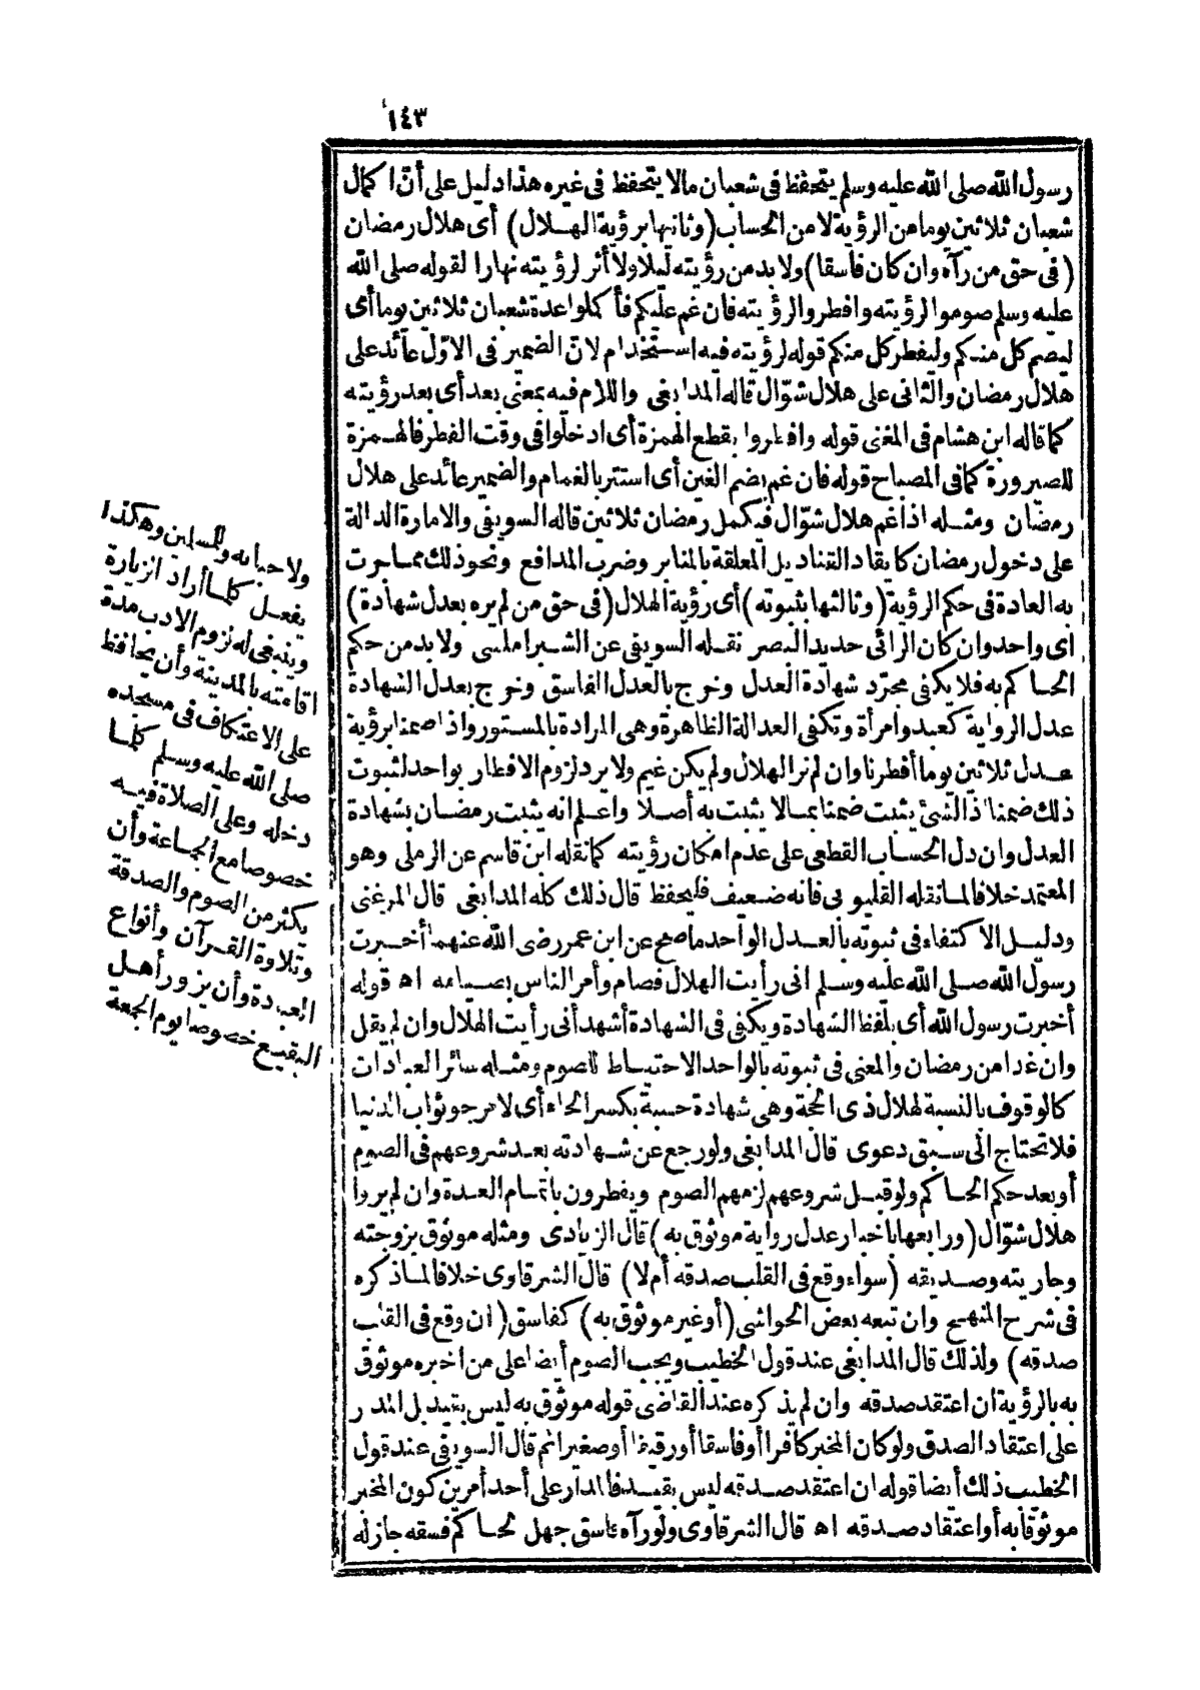 ١٤٣
رسول الله صلى الله عليه وسلم يتحفظ فى شعبان مالا يتحفظ فى غيره هذا دليل على أنّ اكمال
شعبان ثلاثين يوما من الرؤية لا من الحساب (وثانيها برؤية الهلال) أى هلال رمضان
(فى حق من رآه وان كان فاسقا) ولا بد من رؤيته ليلا ولا أثر لرؤيته نهارا لقوله صلى الله
عليه وسلم صوموا لرؤيته وافطروا لرؤيته فان غم عليكم فأكملوا عدة شعبان ثلاثين يوما أى
ليصم كل منكم وليفطر كل منكم قوله لرؤيته فيه استخدام لانّ الضمير فى الاوّل عائد على
هلال رمضان والثانى على هلال شوّال قاله المدابغى واللام فيه بمعنى بعد أى بعد رؤيته
كما قاله ابن هشام فى المغنى قوله وافطروا بقطع الهمزة أى ادخلوا فى وقت الفطر فالهمزة
للصيرورة كما فى المصباح قوله فان غم بضم الغين أى استتر بالغمام والضمير عائد على هلال
رمضان ومثله اذا غم هلال شوّال فيكمل رمضان ثلاثين قاله السويفى والامارة الدالة
على دخول رمضان كايقاد القناديل المعلقة بالمنابر وضرب المدافع ونحو ذلك مما جرت
به العادة فى حكم الرؤية (وثالثها بثبوته) أى رؤية الهلال (فى حق من لم يره بعدل شهادة)
اى واحد وان كان الرائى حديد البصر نقله السويفى عن الشبراملسى ولا بد من حكم
الحاكم به فلا يكفى مجرّد شهادة العدل وخرج بالعدل الفاسق وخرج بعدل الشهادة
عدل الرواية كعبد وامرأة وتكفى العدالة الظاهرة وهى المرادة بالمستور واذا صمنا برؤية
عدل ثلاثين يوما أفطرنا وان لم نر الهلال ولم يكن غيم ولا يرد لزوم الافطار بواحد لثبوت
ذلك ضمنا اذ الشئ يثبت ضمنا بمالا يثبت به أصلا واعلم انه يثبت رمضان بشهادة
العدل وان دل الحساب القطعى على عدم امكان رؤيته كما نقله ابن قاسم عن الرملى وهو
المعتمد خلافا لما نقله القليوبى فانه ضعيف فليحفظ قال ذلك كله المدابغى قال المرغنى
ودليل الاكتفاء فى ثبوته بالعدل الواحد ما صح عن ابن عمر رضى الله عنهما أخبرت
رسول الله صلى الله عليه وسلم انى رأيت الهلال فصام وأمر الناس بصيامه اه قوله
أخبرت رسول الله أى بلفظ الشهادة ويكفى فى الشهادة أشهد أنى رأيت الهلال وان لم يقل
وان غدا من رمضان والمعنى فى ثبوته بالواحد الاحتياط للصوم ومثله سائر العبادات
كالوقوف بالنسبة لهلال ذى الحجة وهى شهادة حسبة بكسر الحاء أى لا مرجو ثواب الدنيا
فلا تحتاج الى سبق دعوى قال المدابغى ولو رجع عن شهادته بعد شروعهم فى الصوم
أو بعد حكم الحاكم ولو قبل شروعهم لزمهم الصوم ويفطرون باتمام العدة وان لم يروا
هلال شوّال (ورابعها باخبار عدل رواية موثوق به) قال الزيادى ومثله موثوق بزوجته
وجاريته وصديقه (سواء وقع فى القلب صدقه أم لا) قال الشرقاوى خلافا لما ذكره
فى شرح المنهج وان تبعه بعض الحواشى (أو غير موثوق به) كفاسق (ان وقع فى القلب
صدقه) ولذلك قال المدابغى عند قول الخطيب ويجب الصوم أيضا على من اخبره موثوق
به بالرؤية ان اعتقد صدقه وان لم يذكره عند القاضى قوله موثوق به ليس بقيد بل المدار
على اعتقاد الصدق ولو كان المخبر كافرا أو فاسقا أو رقيقا أو صغيرا ثم قال السويفى عند قول
الخطيب ذلك أيضا قوله ان اعتقد صدقه ليس بقيد فالمدار على أحد أمرين كون المخبر
موثوقا به أو اعتقاد صدقه اه قال الشرقاوى ولو رآه فاسق جهل الحاكم فسقه جاز له
ولاحبابه وللمسلمين وهكذا
يفعل كلما أراد الزيارة
وينبغى له لزوم الادب مدة
اقامته بالمدينة وأن يحافظ
على الاعتكاف فى مسجده
صلى الله عليه وسلم كلما
دخله وعلى الصلاة فيه
خصوصا مع الجماعة وأن
يكثر من الصوم والصدقة
وتلاوة القرآن وأنواع
العبادة وأن يزور أهل
البقيع خصوصا يوم الجمعة